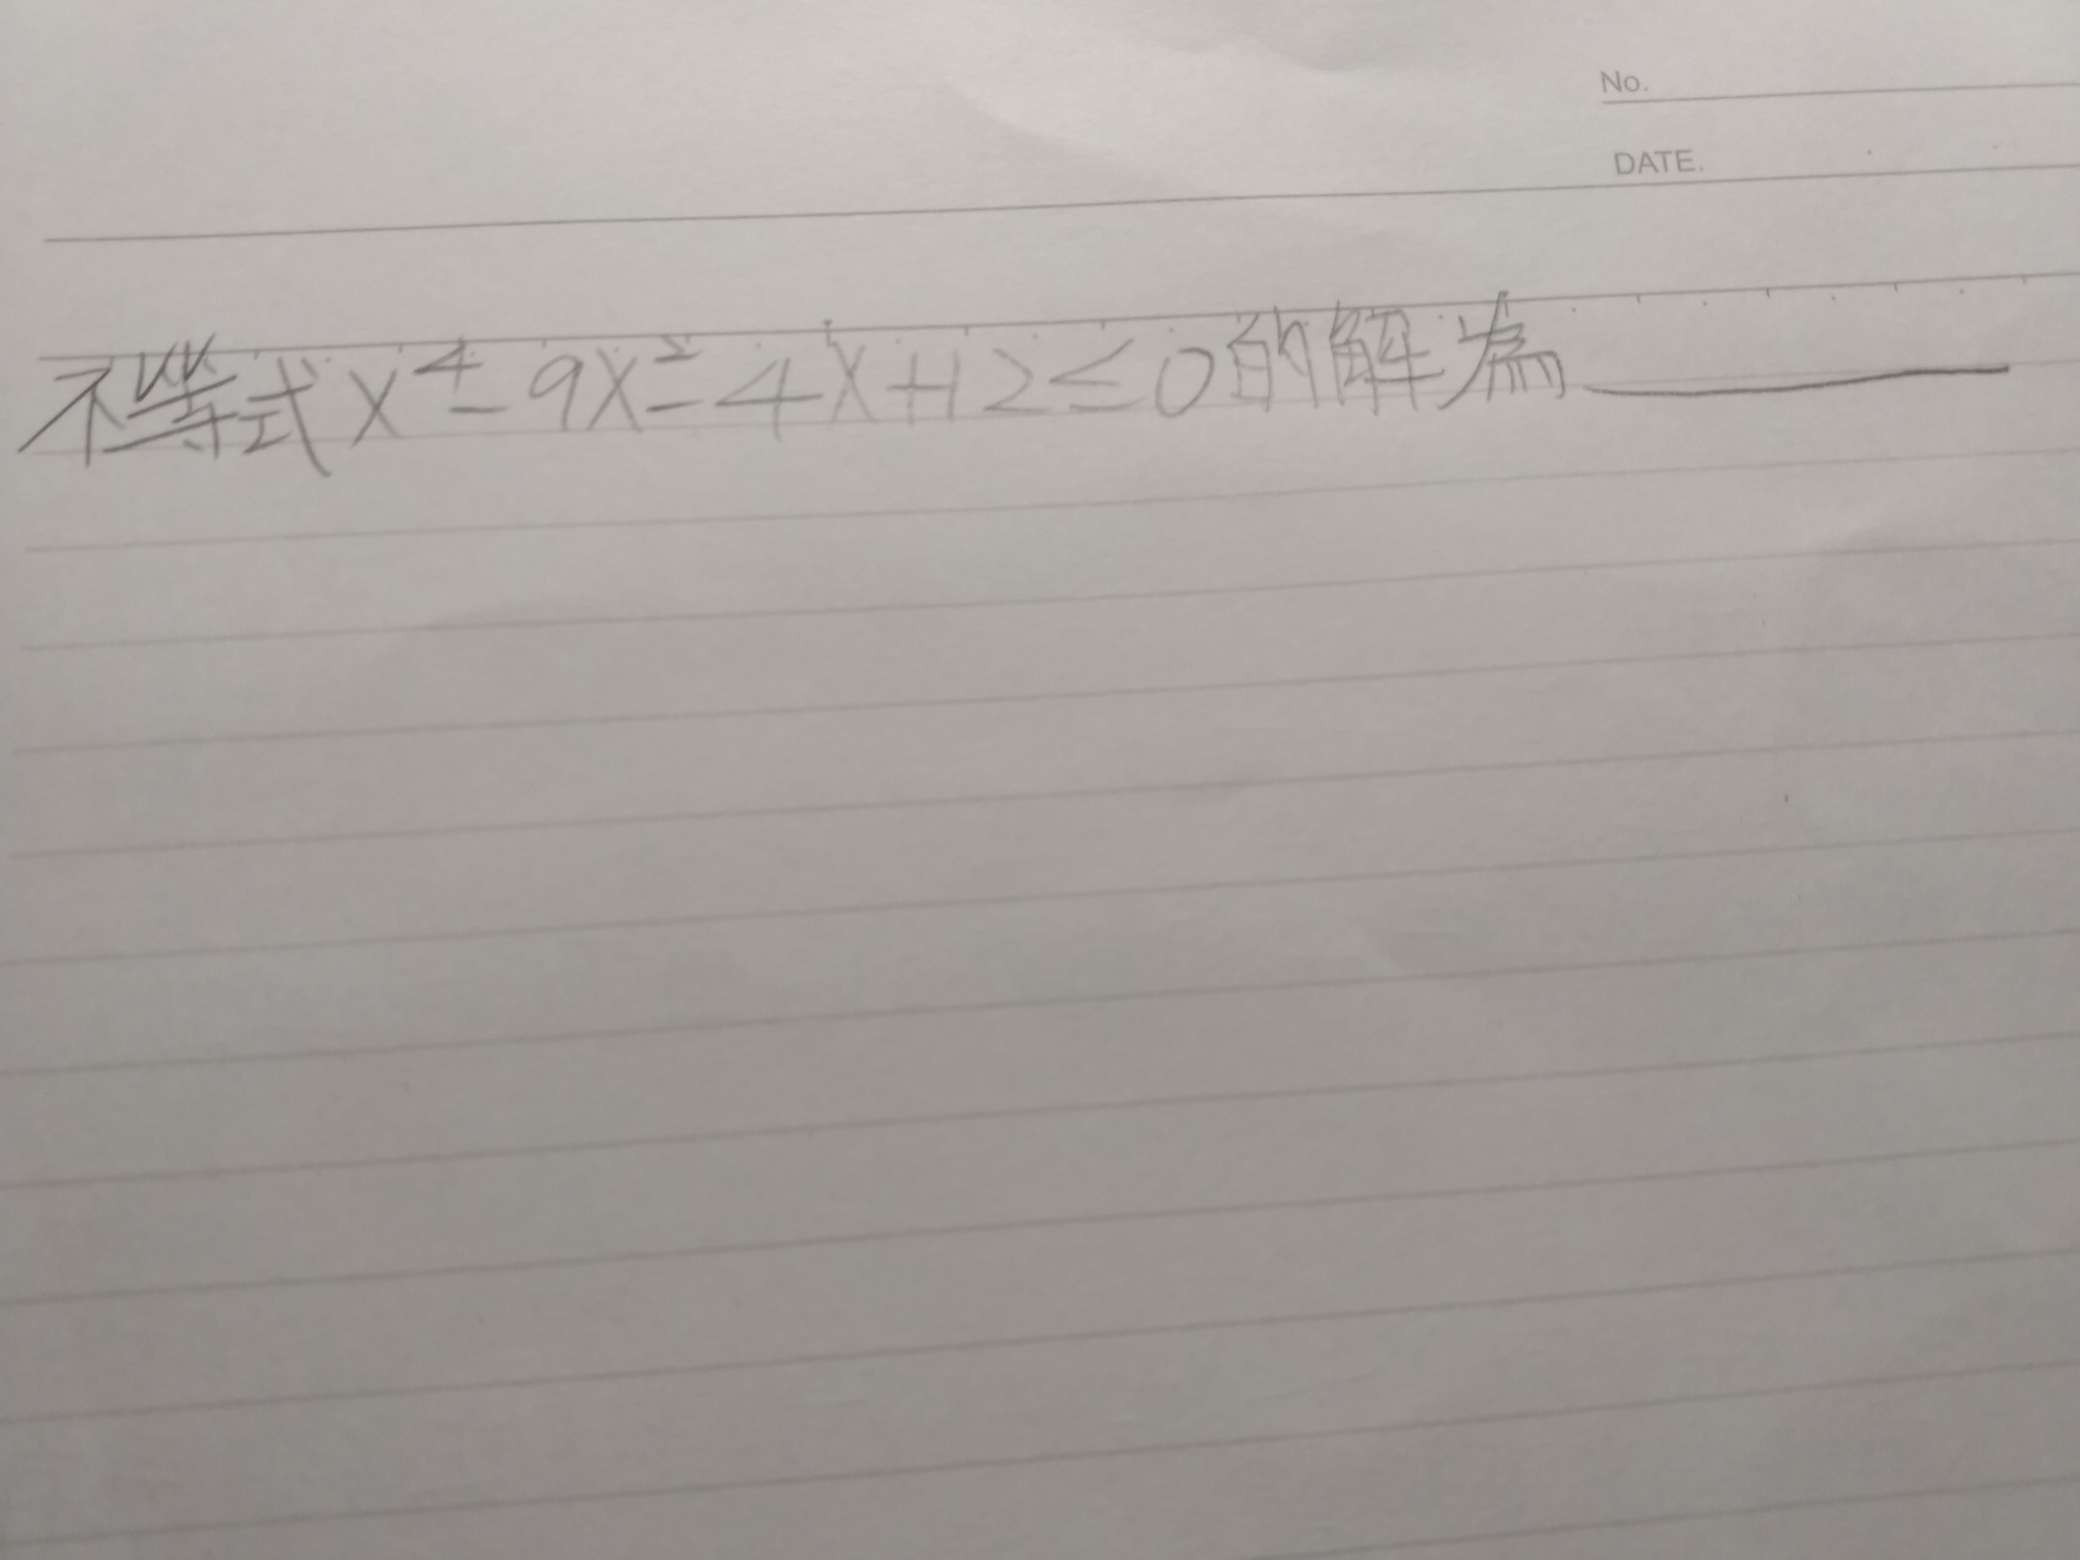 No.
DATE.
不等式x⁴-9x²-4x+12≤0的解為______